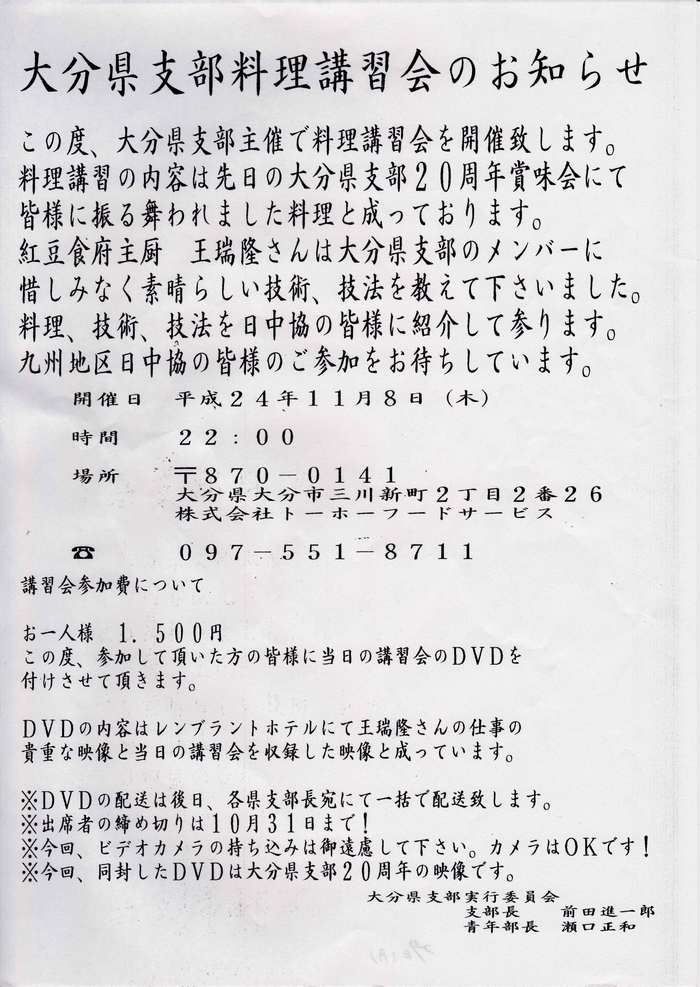 大分県支部料理講習会のお知らせ
この度、大分県支部主催で料理講習会を開催致します。
料理講習の内容は先日の大分県支部20周年賞味会にて
皆様に振る舞われました料理と成っております。
紅豆食府主厨　王瑞隆さんは大分県支部のメンバーに
惜しみなく素晴らしい技術、技法を教えて下さいました。
料理、技術、技法を日中協の皆様に紹介して参ります。
九州地区日中協の皆様のご参加をお待ちしています。
開催日　平成24年11月8日（木）
時間　22：00
場所　〒870－0141
大分県大分市三川新町2丁目2番26
株式会社トーホーフードサービス
☎　097－551－8711
講習会参加費について
お一人様　1．500円
この度、参加して頂いた方の皆様に当日の講習会のDVDを
付けさせて頂きます。
DVDの内容はレンブラントホテルにて王瑞隆さんの仕事の
貴重な映像と当日の講習会を収録した映像と成っています。
※DVDの配送は後日、各県支部長宛にて一括で配送致します。
※出席者の締め切りは10月31日まで！
※今回、ビデオカメラの持ち込みは御遠慮して下さい。カメラはOKです！
※今回、同封したDVDは大分県支部20周年の映像です。
大分県支部実行委員会
支部長　前田進一郎
青年部長　瀬口正和